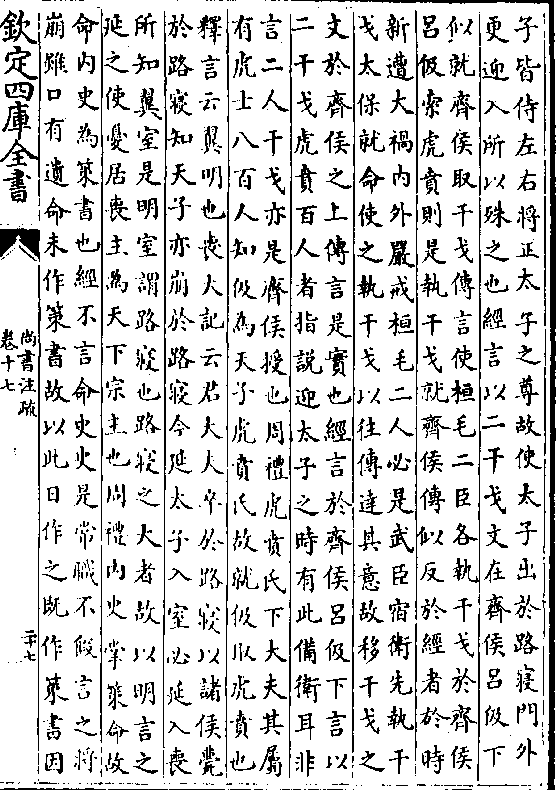 子皆侍左右將正太子之尊故使太子出於路寢門外
更迎入所以殊之也經言以二干戈文在齊侯呂伋下
似就齊侯取干戈傳言使桓毛二臣各執干戈於齊侯
呂伋索虎賁則是執干戈就齊侯傳似反於經者於時
新遭大禍內外嚴戒桓毛二人必是武臣宿衛先執干
戈太保就命使之執干戈以往傳達其意故移干戈之
文於齊侯之上傳言是實也經言於齊侯呂伋下言以
二干戈虎賁百人者指說迎太子之時有此備衛耳非
言二人干戈亦是齊侯授也周禮虎賁氏下大夫其屬
有虎士八百人知伋為天子虎賁氏故就伋取虎賁也
釋言云翼明也喪大記云君大夫卒於路寢以諸侯薨
於路寢知天子亦崩於路寢今延太子入室必延入喪
所知翼室是明室謂路寢也路寢之大者故以明言之
延之使憂居喪主為天下宗主也周禮內史掌策命故
命內史為策書也經不言命史史是常職不假言之將
崩雖口有遺命未作策書故以此日作之既作策書因
欽定四庫全書
尚書注疏
卷十七
二十七